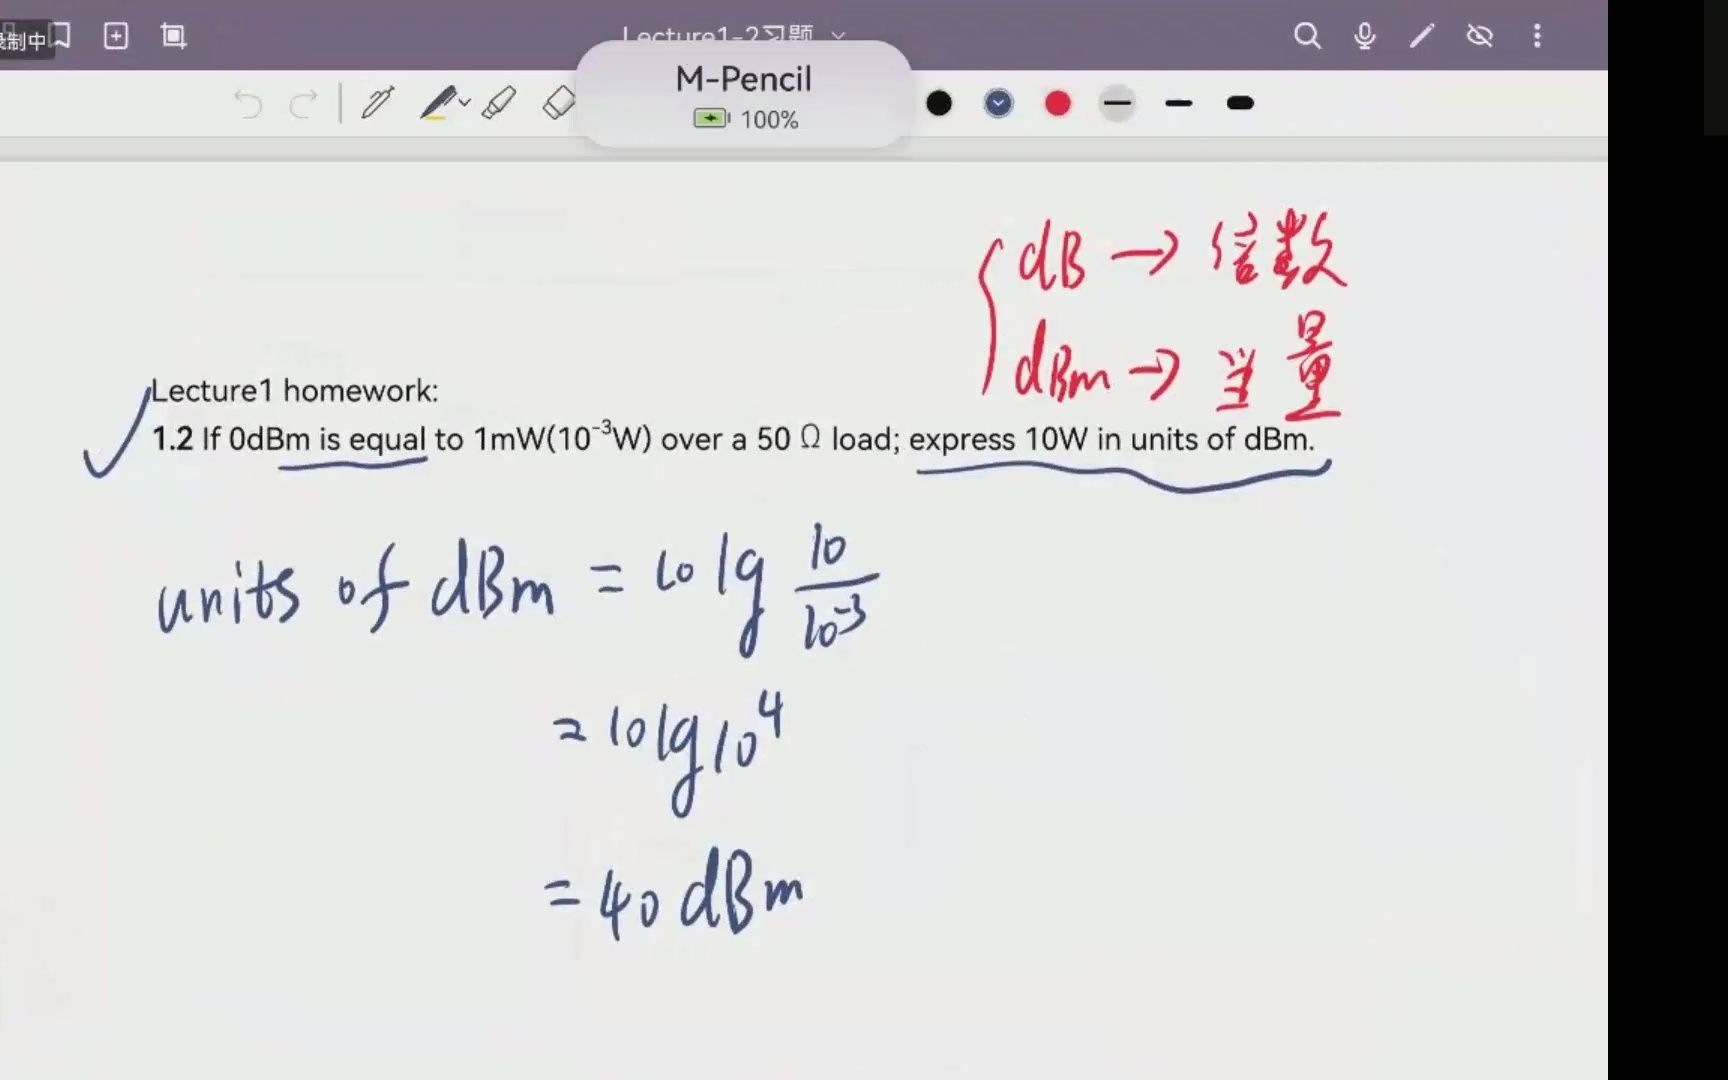 录制中
Lecture1-2习题
M-Pencil
100%
dB → 倍数
dBm → 当量
Lecture1 homework:
1.2 If 0dBm is equal to 1mW(10⁻³W) over a 50 Ω load; express 10W in units of dBm.
units of dBm = 10 lg 10/10⁻³
= 10 lg 10⁴
= 40 dBm